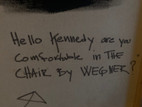 Hello Kennedy are you
Comfortable in THE
CHAIR By WEGNER?